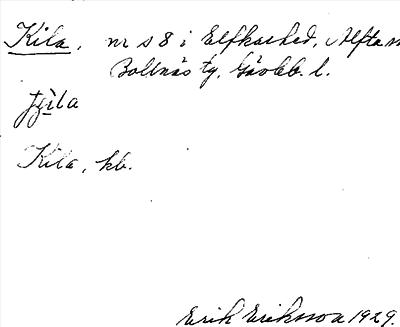 Kila, nr s 8 i Elfkarhed, Alfta sn
Bollnäs tg. Gävleb. l.
Kila, kb.
Erik Eriksson 1929.